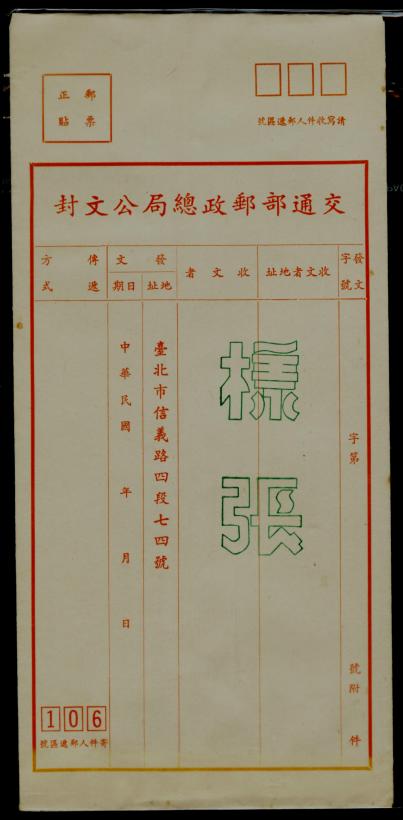 郵票
正貼
請寫收件人郵遞區號
交通部郵政總局公文封
發文
字號
收文者地址
收文者
發文
地址
日期
傳遞
方式
字第 號附件
樣張
臺北市信義路四段七四號
中華民國 年 月 日
106
寄件人郵遞區號